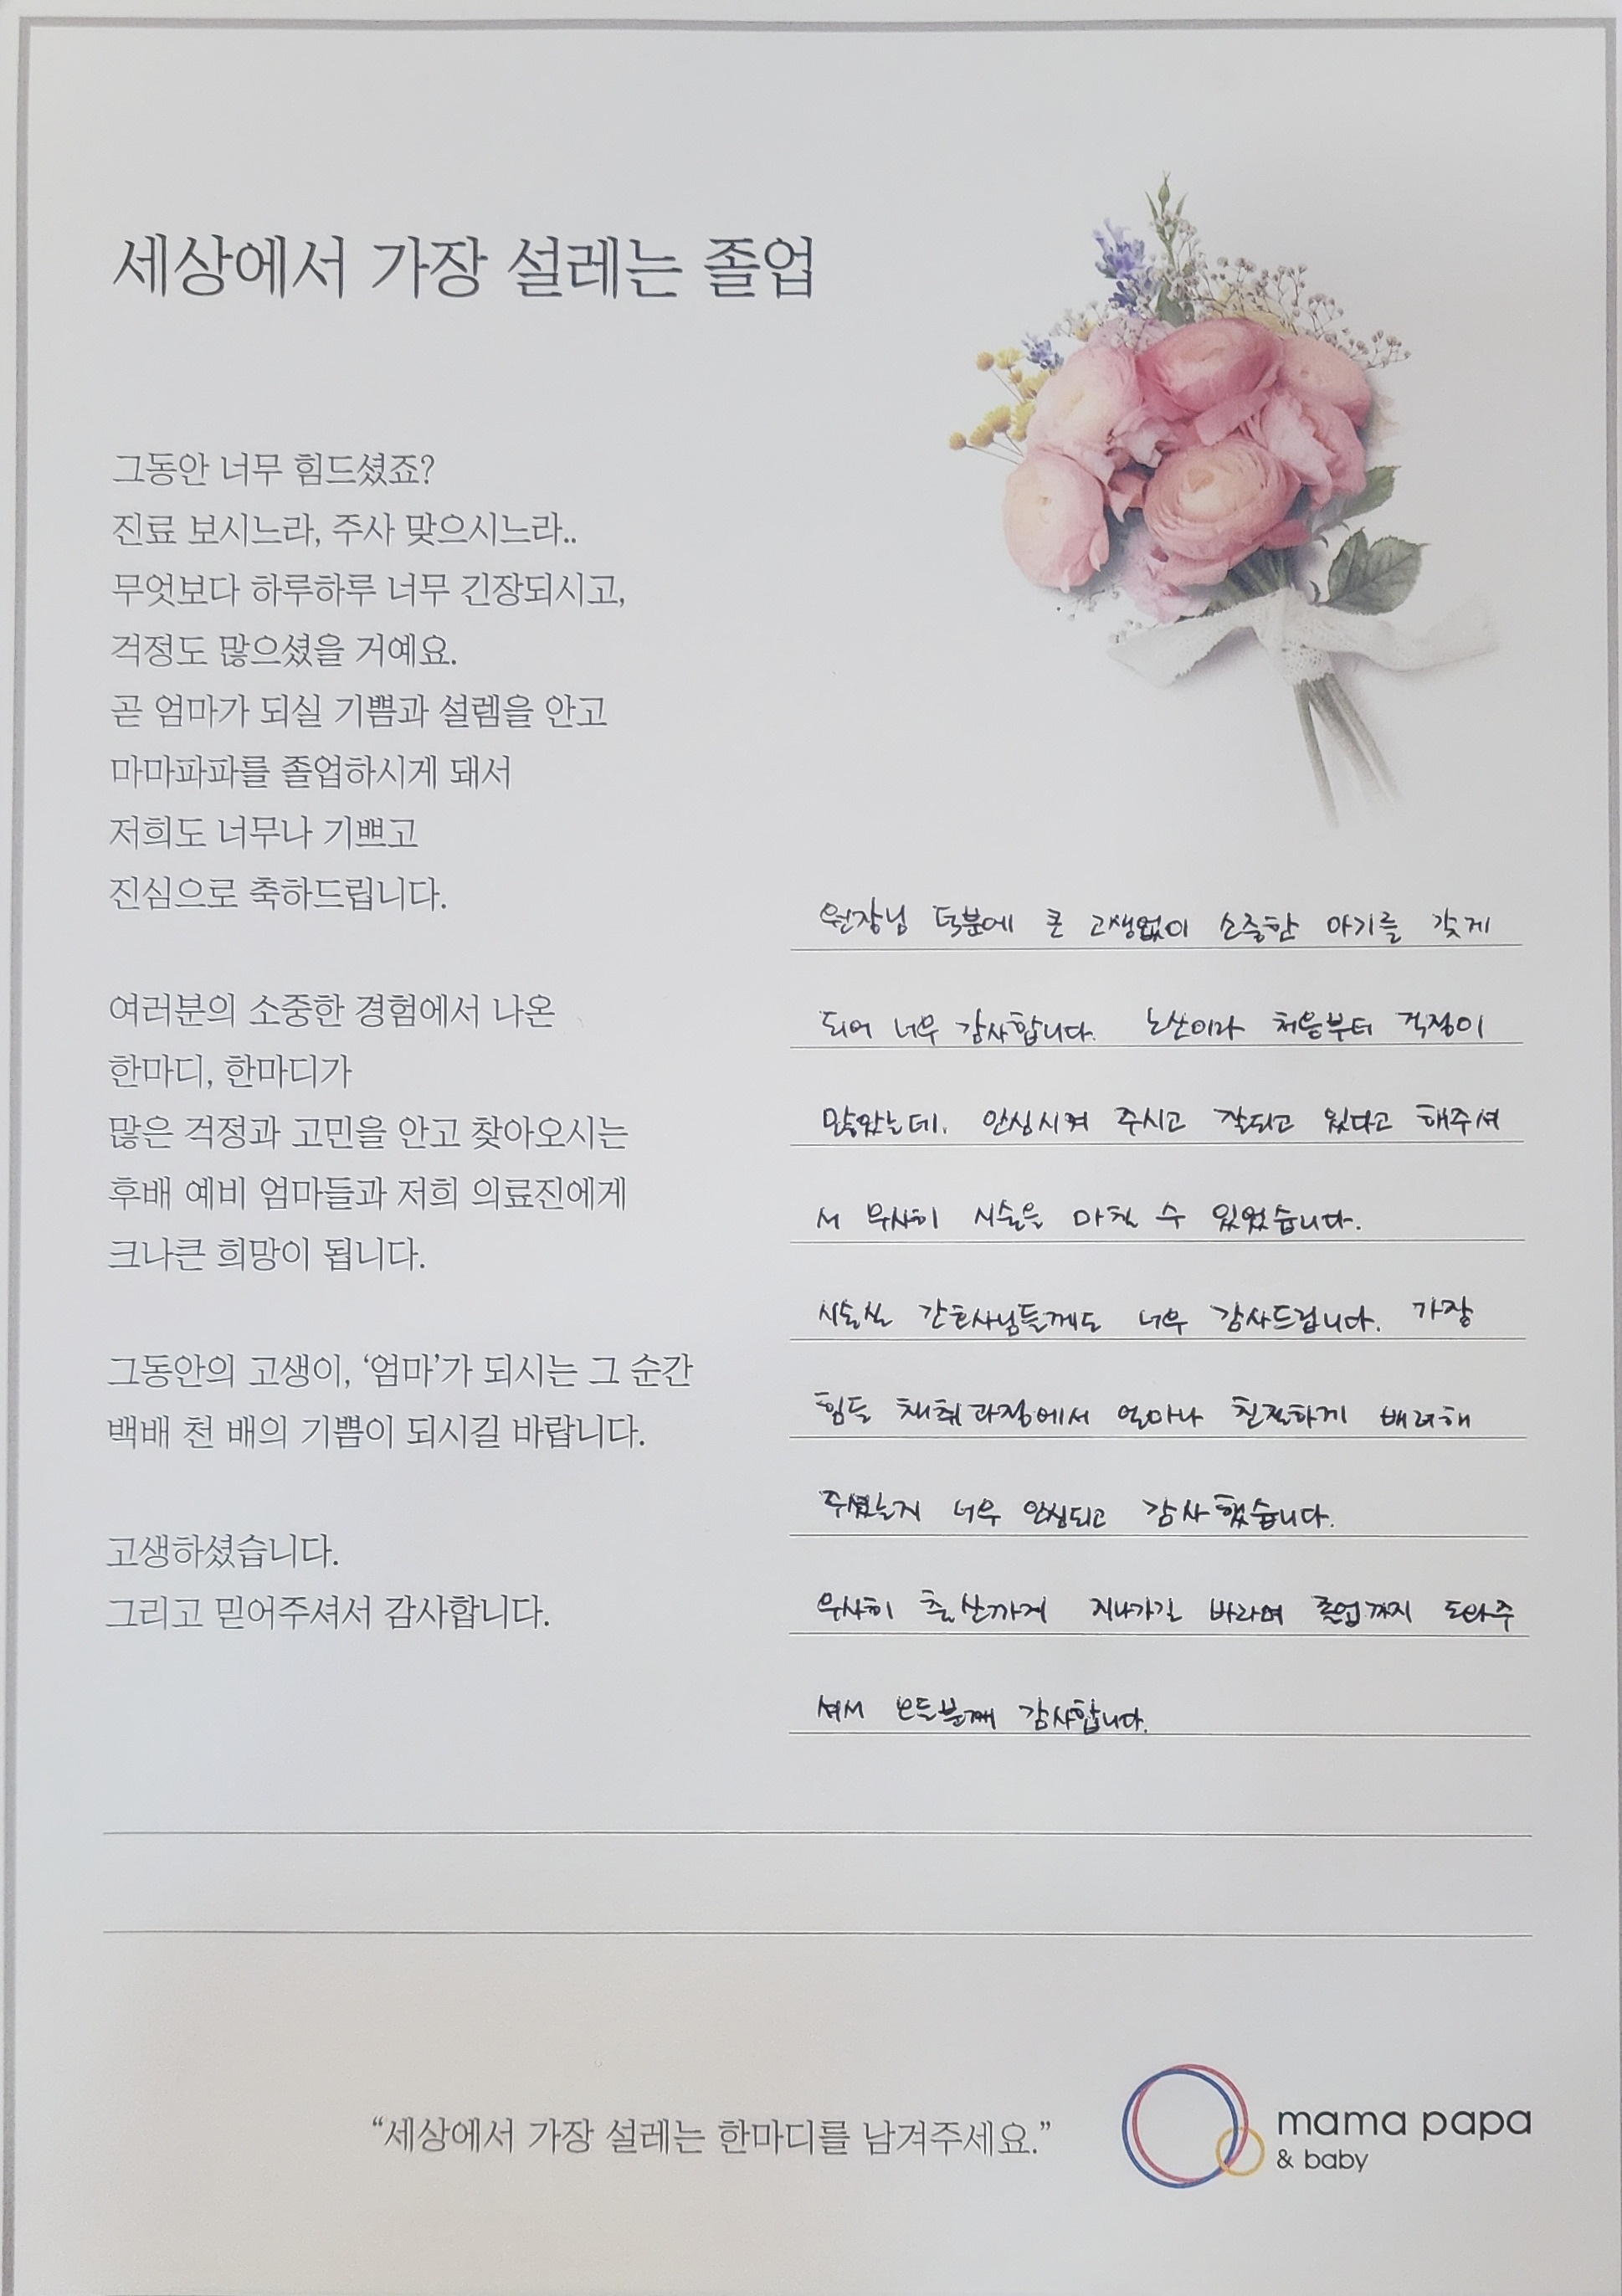 세상에서 가장 설레는 졸업
그동안 너무 힘드셨죠?
진료 보시느라, 주사 맞으시느라..
무엇보다 하루하루 너무 긴장되시고,
걱정도 많으셨을 거예요.
곧 엄마가 되실 기쁨과 설렘을 안고
마마파파를 졸업하시게 돼서
저희도 너무나 기쁘고
진심으로 축하드립니다.
여러분의 소중한 경험에서 나온
한마디, 한마디가
많은 걱정과 고민을 안고 찾아오시는
후배 예비 엄마들과 저희 의료진에게
크나큰 희망이 됩니다.
그동안의 고생이, ‘엄마’가 되시는 그 순간
백배 천 배의 기쁨이 되시길 바랍니다.
고생하셨습니다.
그리고 믿어주셔서 감사합니다.
원장님 덕분에 큰 고생없이 소중한 아기를 갖게
되어 너무 감사합니다. 노산이라 처음부터 걱정이
많았는데. 안심시켜 주시고 잘되고 있다고 해주셔
서 무사히 시술을 마칠 수 있었습니다.
시술실 간호사님들께도 너무 감사드립니다. 가장
힘든 채취과정에서 얼마나 친절하게 배려해
주셨는지 너무 안심되고 감사했습니다.
무사히 출산까지 지나가길 바라며 졸업까지 도와주
셔서 모든분께 감사합니다.
“세상에서 가장 설레는 한마디를 남겨주세요.”
mama papa
& baby